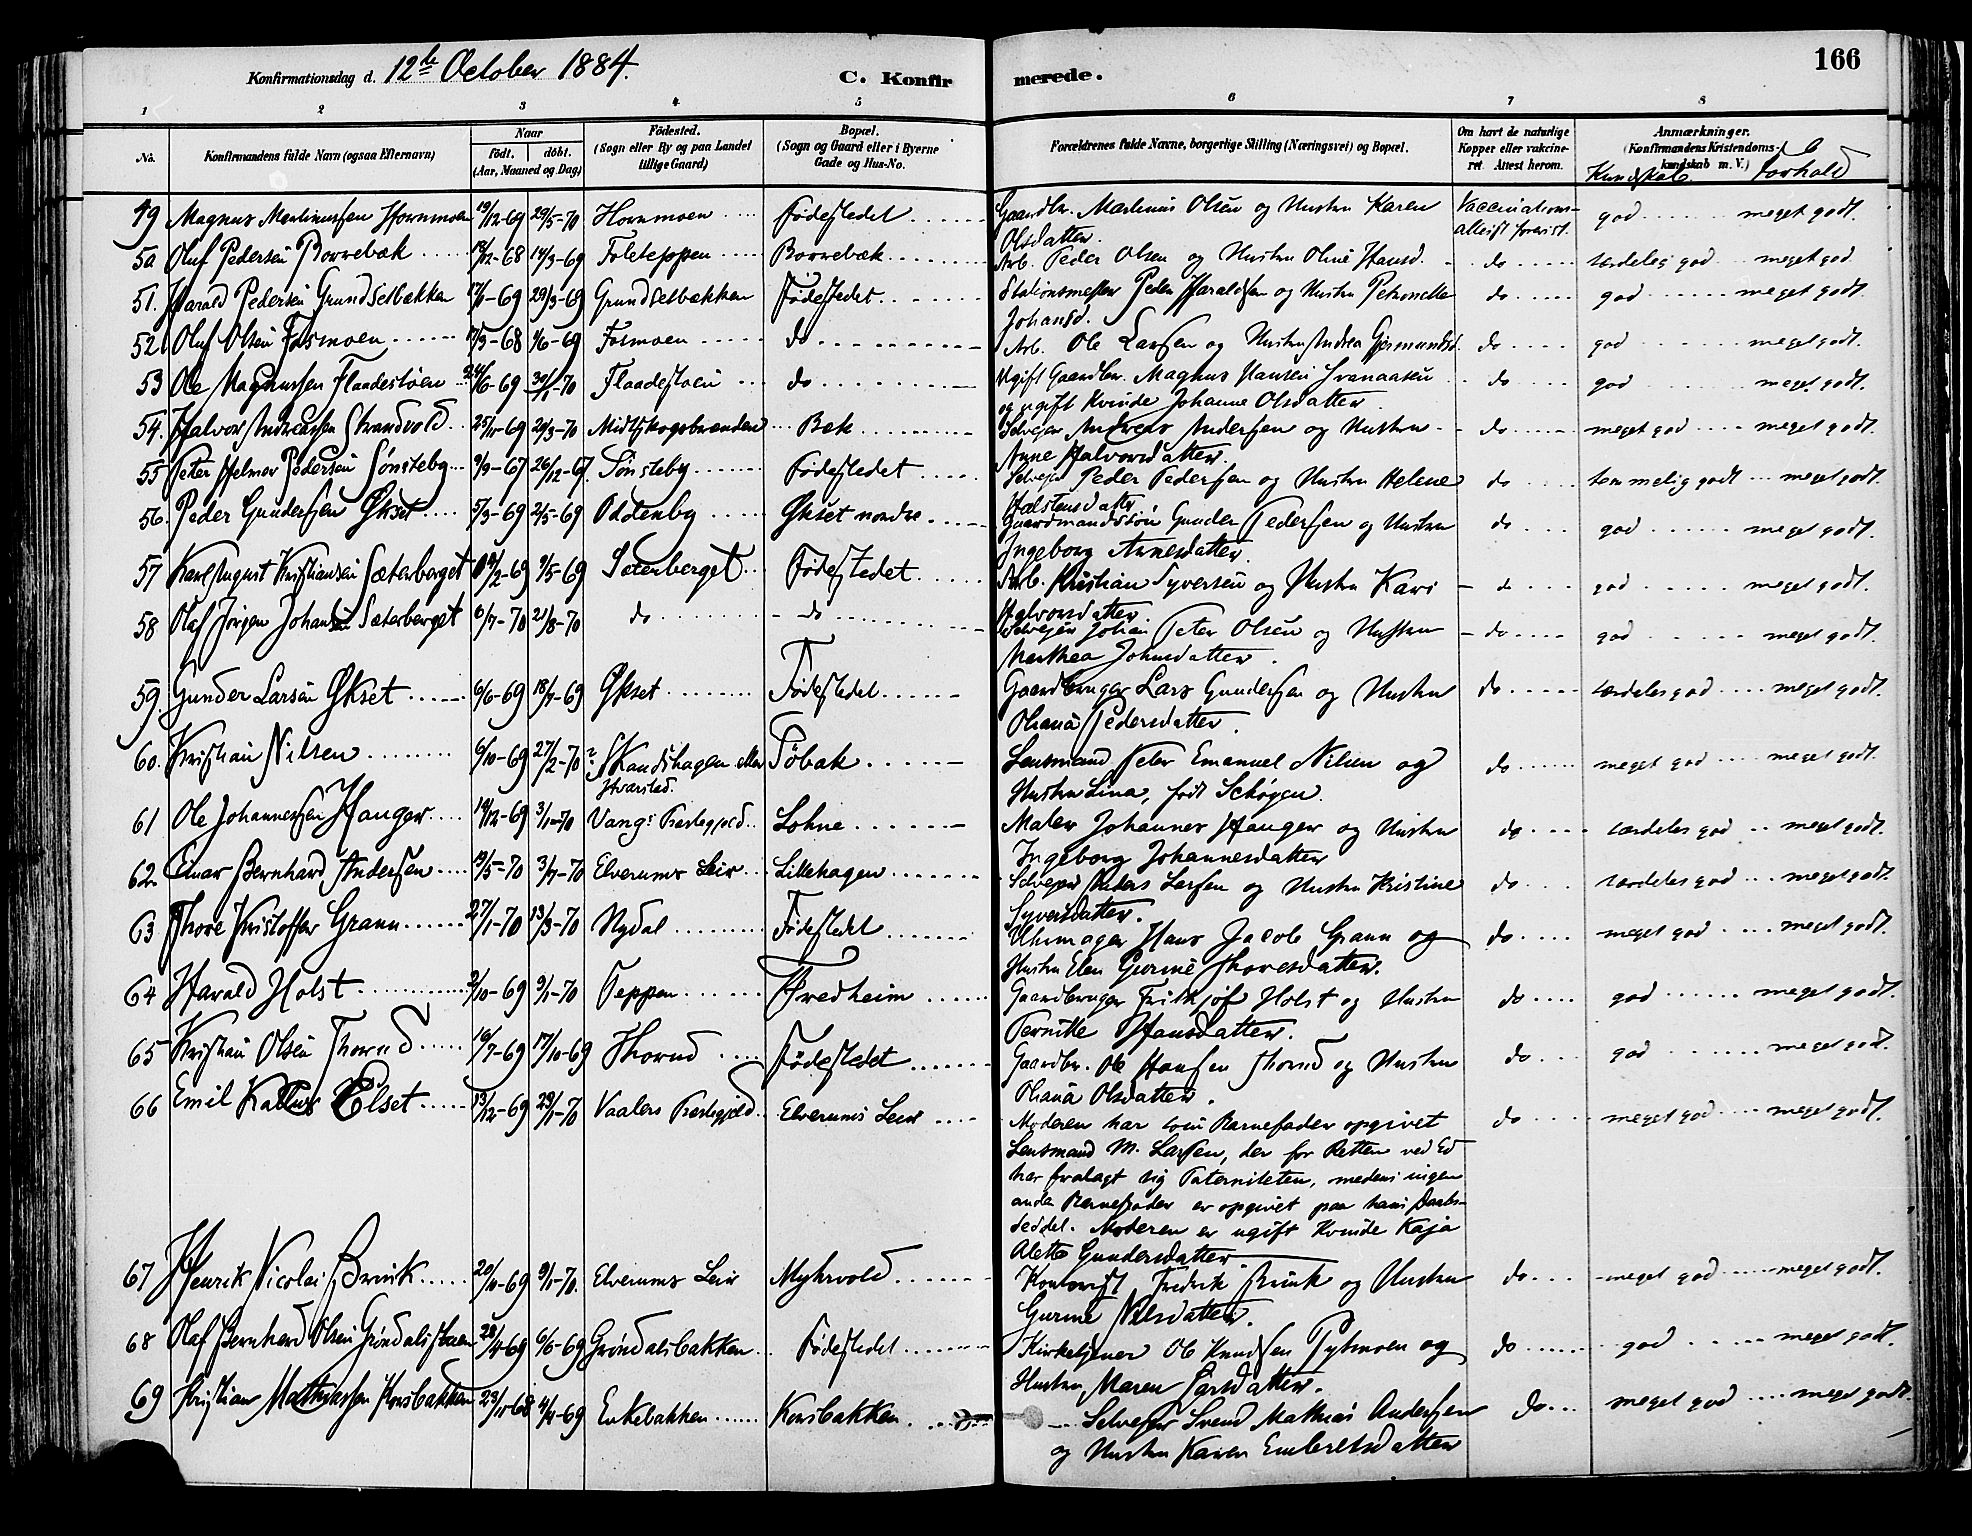 Konfirmationsdag d. 12te October 1884. C. Konfirmerede. 166
1 2 3 4 5 6 7 8
No. Konfirmandens fulde Navn (ogsaa Efternavn) Naar født. døbt. (Aar, Maaned og Dag) Fødested. (Sogn eller By og paa Landet tillige Gaard) Bopæl. (Sogn og Gaard eller i Byerne Gade og Hus-No. Forældrenes fulde Navne, borgerlige Stilling (Næringsvei) og Bopæl. Om havt de naturlige Kopper eller vaccineret. Attest herom. Anmærkninger. (Konfirmandens Kristendomskundskab m. V.) Kundskab. Forhold
49 Magnus Martinussen Hornmoen 19/12-69 29/5-70 Hornmoen Fødestedet Gaardbr. Martinus Olsen og Hustru Karen Vaccinations- god meget godt.
Olsdatter. attest forevist.
50 Oluf Pedersen Borrebæk 18/12-68 14/3-69 Foleteppen Borrebæk Arb. Peder Olsen og Hustru Oline Hansd. do særdeles god meget god
51. Harald Pedersen Grundsetbakken 17/1-69 29/3-69 Grundsetbækken Fødestedet Stationsmester Peder Haraldsen og Hustru Petronelle do god meget godt.
Johansd.
52. Oluf Olsen Fosmoen /3-68 /6-69 Fosmoen do Arb. Ole Larsen og Hustru Andrea Gjermundsd. do god meget godt.
53 Ole Magnussen Flaadestøen 24/6-69 30/1-70 Flaadestøen do Ugift Gaardbr. Magnus Hansen Svenaasen do god meget godt.
og ugift Kvinde Johanne Olsdatter.
54. Halvor Andreassen Strandvold 25/11-69 29/3-70 Midtskogsbrænden Bæk Selveier Andreas Andersen og Hustru do meget god meget godt.
Anne Halvorsdatter.
55 Peter Helmer Pedersen Sønsteby 9/9-67 26/12-67. Sønsteby Fødestedet Selveier Peder Pedersen og Hustru Helene do temmelig godt meget godt.
Halstensdatter
56. Peder Gundersen Økset 5/3-69 2/5-69 Oddenby Økset nordre Gaardmandssøn Gunder Pedersen og Hustru do god meget godt.
Ingeborg Arnesdatter.
57 Karl August Kristiansen Sæterberget /2-69 9/5-69 Sæterberget Fødestedet Arb. Kristian Syversen og Hustru Kari do god meget godt.
Halvorsdatter.
58 Olaf Jørgen Johansen Sæterberget 6/7-70 21/8-70 do do Selveier Johan Peter Olsen og Hustru do god meget godt.
Marthea Johnsdatter.
59. Gunder Larsen Økset 6/6-69 18/7-69 Økset Fødestedet Gaardbruger Lars Gundersen og Hustru do særdeles god meget godt.
Oliana Pedersdatter.
60. Kristian Nilsen 6/10-69 27/2-70 ? Strandshagen eller Tøbak Lensmand Peter Emanuel Nilsen og do meget god meget godt.
Hvarstad. Hustru Lina, født Schøgen.
61 Ole Johannessen Hanger 14/12-69 3/1-70 Vangs Præstegjeld Lohne Maler Johannes Hanger og Hustru do særdeles god meget godt.
Ingeborg Johannesdatter
62. Einar Bernhard Andersen 19/5-70 3/7-70 Elverums Leir Lillehagen Selveier Anders Larsen og Hustru Kristine do særdeles god meget godt.
Syversdatter.
63 Thore Kristoffer Grann 27/1-70 13/3-70 Nydal Fødestedet Uhrmager Hans Jacob Grann og do meget god meget godt.
Hustru Elen Gurine Thoresdatter.
64 Harald Holst 2/10-69 9/1-70 Teppen Fredheim Gaardbruger Fritjof Holst og Hustru do god meget godt.
Pernille Hansdatter.
65 Kristian Olsen Thorud 16/7-69 17/10-69 Thorud Fødestedet Gaardbr. Ole Hansen Thorud og Hustru do god meget godt.
Oliana Olsdatter.
66 Emil Elset 13/12-69 29/1-70 Vaalers Præstegjeld Elverums Leir Moderen har som Barnefader opgivet do meget god meget godt.
Lensmand M. Larsen, der for Retten ved Ed
har fralagt sig Paterniteten, medens ingen
anden Barnefader er opgivet paa hans Daabs-
seddel. Moderen er ugift Kvinde Kaja
Alette Gundersdatter.
67 Henrik Nicolai Brink 20/11-69 9/1-70. Elverums Leir Myhrvold Kontorist Fredrik Brink og Hustru do meget god meget godt.
Gurine Nilsdatter.
68 Olaf Bernhard Olsen Grøndalsbakken 28/4-69 6/6-69 Grøndalsbakken Fødestedet Kirketjener Ole Knudsen Pytmoen og do god meget godt.
Hustru Maren Larsdatter.
69 Kristian Mathiassen Korsbakken 23/11-68 4/4-69 Enkebakken Korsbakken Selveier Svend Mathias Andersen do meget god meget godt.
og Hustru Karen Embretsdatter